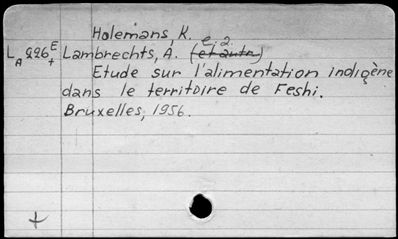 Holemans, K.
e. a.
L A 226 E + Lambrechts, A. (et autr.)
Etude sur l'alimentation indigène
dans le territoire de Feshi.
Bruxelles, 1956.
+